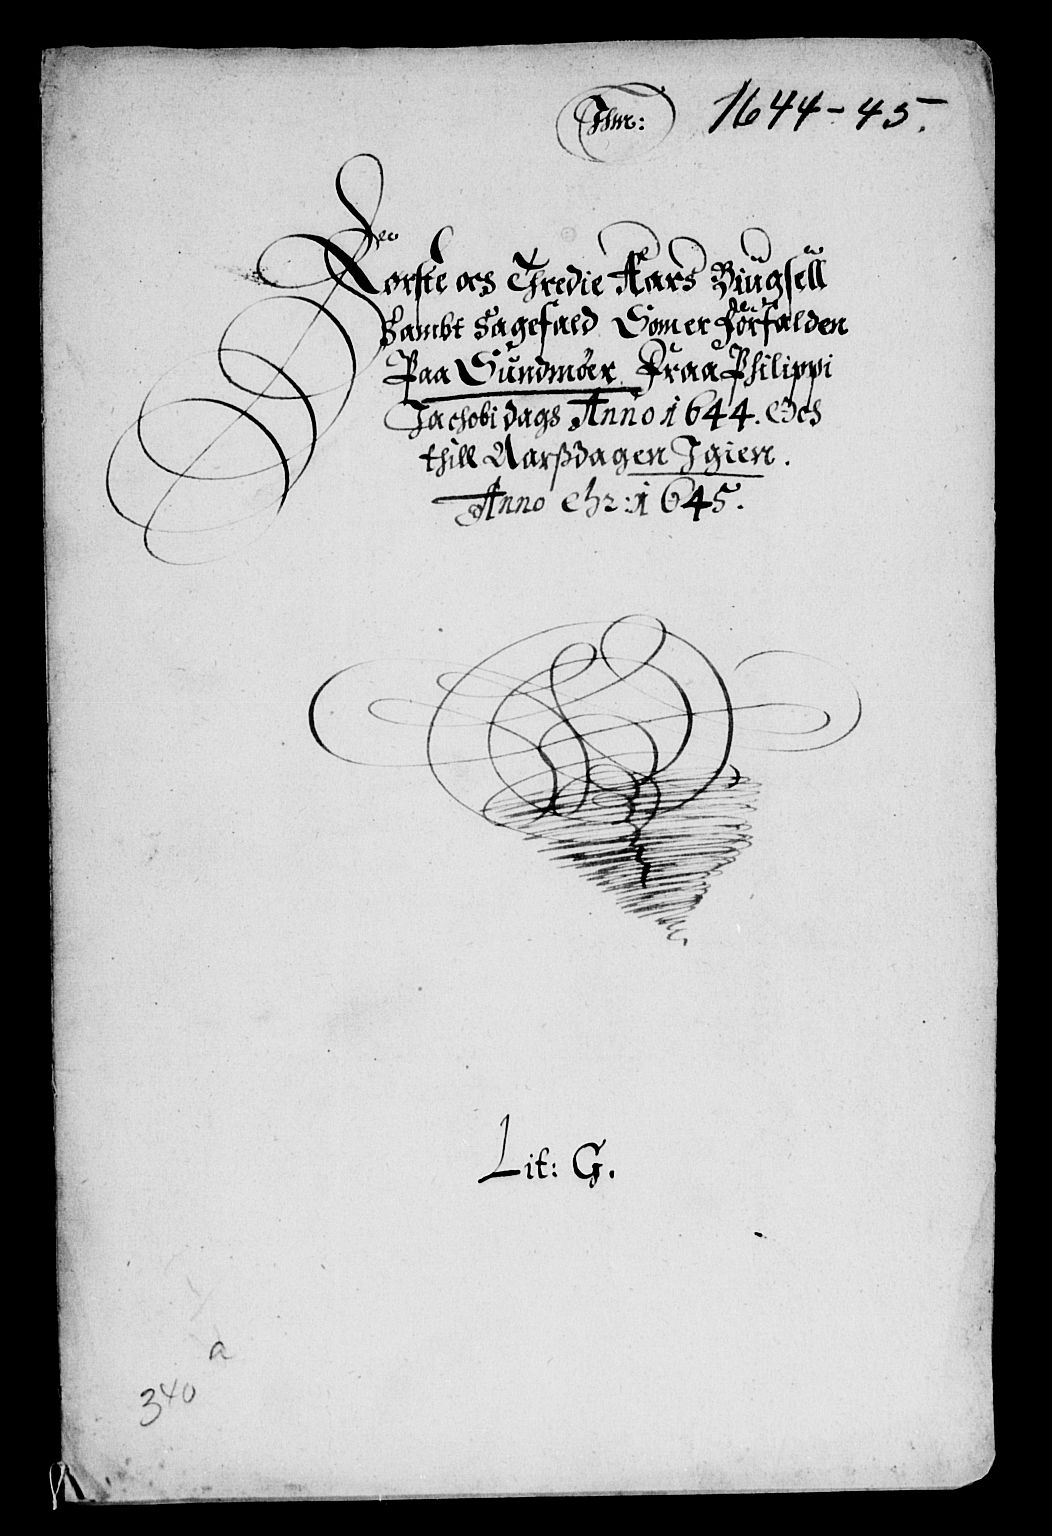 1644-45.
Første och Thredie Aars Büugsell
Sambt Sagefald Som er forfalden
Paa Sündmöer Fraa Philippi
Jachobi dags Anno 1644. Och
thill Aarßdagen Igien.
Anno Chr: 1645.
Lit: G.
a
340